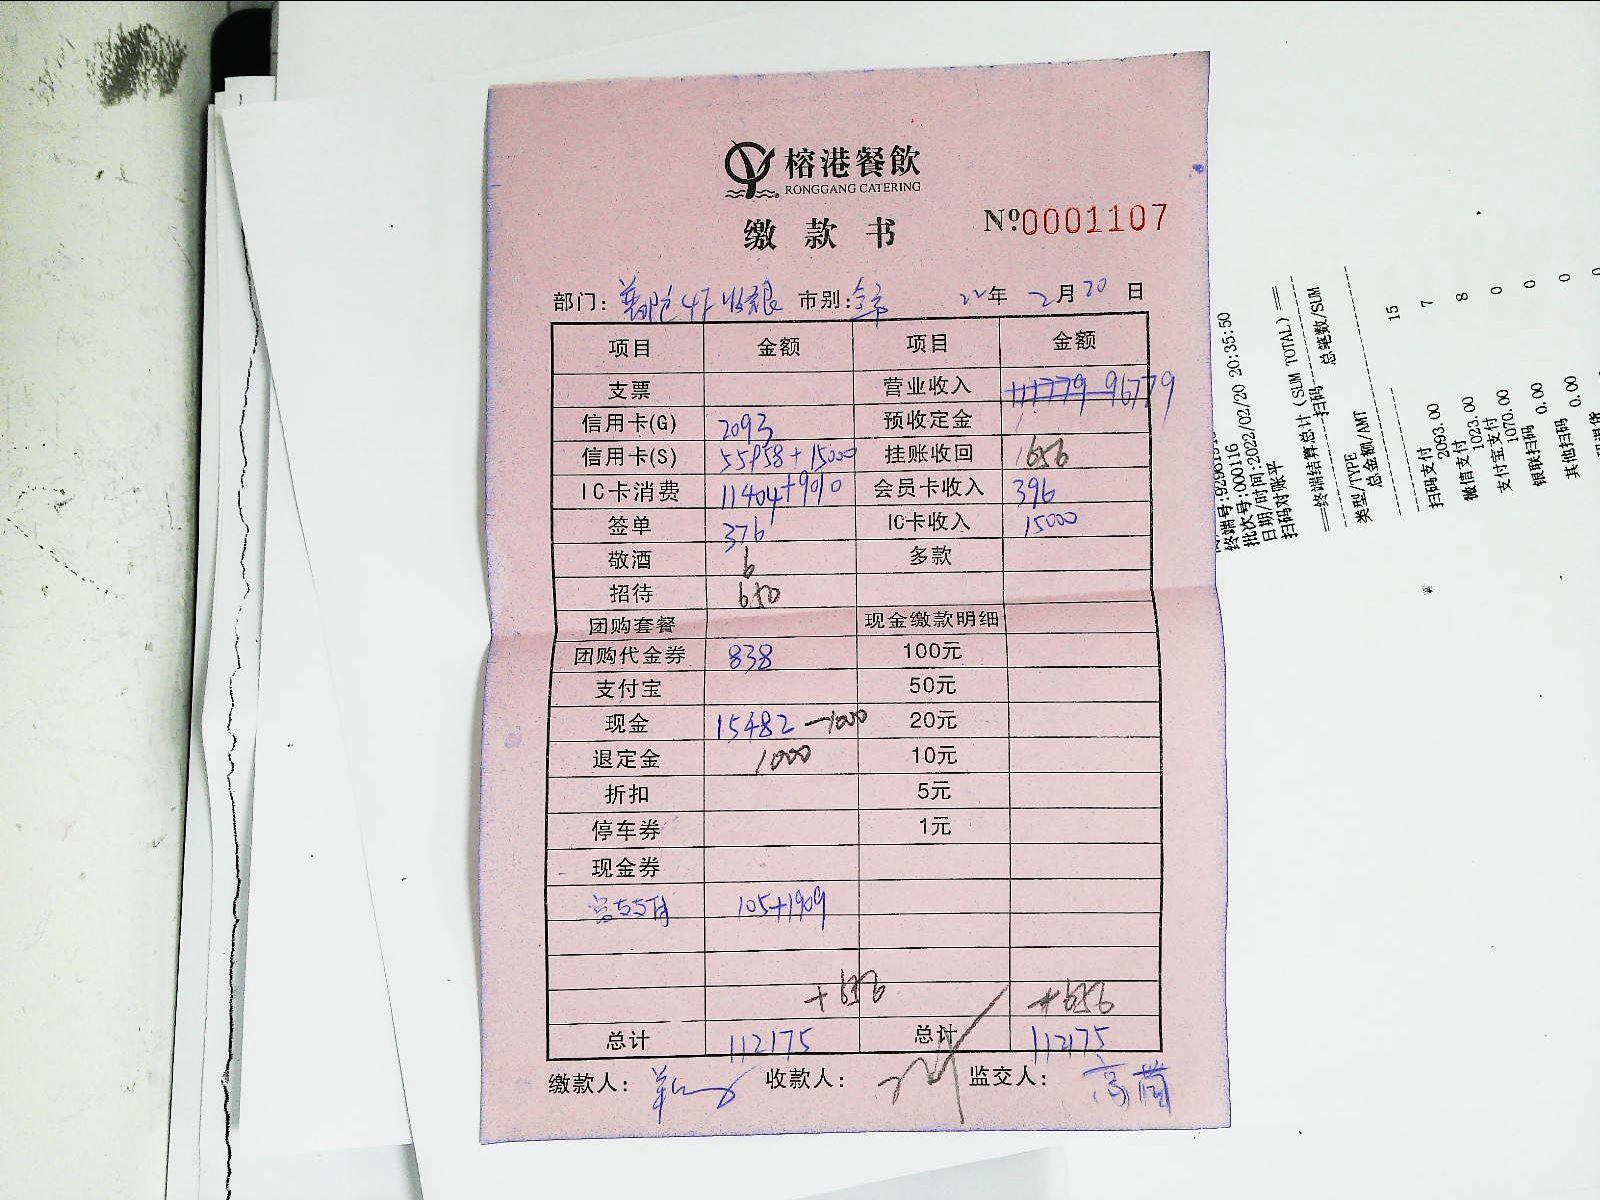 榕港餐飲
RONGGANG CATERING
缴款书
Nº0001107
部门: 4F收银 市别:全市 22年 2月20日
项目 金额 项目 金额
支票 营业收入 111779 96779
信用卡(G) 2093 预收定金
信用卡(S) 55958+15000 挂账收回 1656
IC卡消费 11404+9010 会员卡收入 396
签单 376 IC卡收入 15000
敬酒 6 多款
招待 650
团购套餐 现金缴款明细
团购代金券 838 100元
支付宝 50元
现金 15482 -1000 20元
退定金 1000 10元
折扣 5元
停车券 1元
现金券
105+1909
+656 +656
总计 112175 总计 112175
缴款人: 收款人: 监交人:
终端号:
批次号:000116
日期/时间:2022/02/20 20:35:50
扫码对账平
==终端结算总计(SUM TOTAL)==
类型/TYPE 扫码 总笔数/SUM
总金额/AMT
15
扫码支付 7
2093.00
微信支付 8
1023.00
支付宝支付 0
1070.00
银联扫码 0
0.00
其他扫码 0
0.00